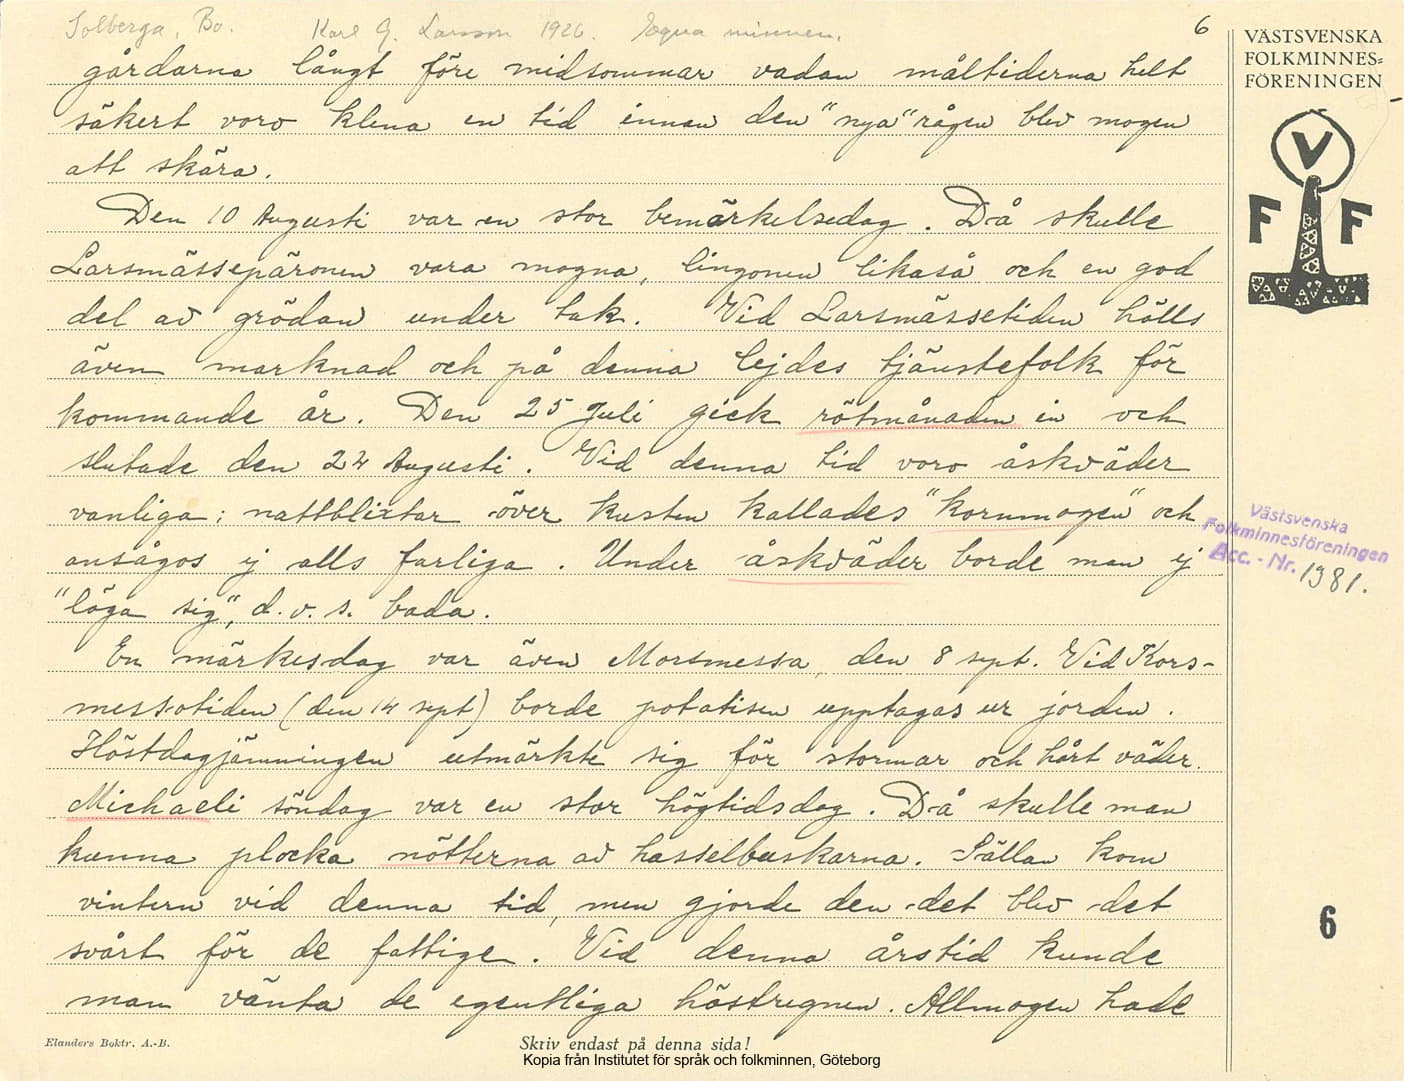 Solberga, Bo. Karl G. Larsson 1926. Egna minnen.
6
VÄSTSVENSKA
FOLKMINNES-
FÖRENINGEN
V
F F
gårdarna långt före midsommar vadan måltiderna helt
säkert voro klena en tid innan den "nya" rågen blev mogen
att skära.
Den 10 Augusti var en stor bemärkelsedag. Då skulle
Larsmässepäronen vara mogna, lingonen likaså och en god
del av grödan under tak. Vid Larsmässetiden hölls
även marknad och på denna lejdes tjänstefolk för
kommande år. Den 25 Juli gick rötmånaden in och
slutade den 24 Augusti. Vid denna tid voro åskväder
vanliga; nattblixtar över kusten kallades "kornmogen" och
ansågos ej alls farliga. Under åskväder borde man ej
"löga sig", d.v.s. bada.
En märkesdag var även Morsmessa, den 8 sept. Vid Kors-
messotiden (den 14 sept) borde potatisen upptagas ur jorden.
Höstdagjämningen utmärkte sig för stormar och hårt väder.
Michaeli söndag var en stor högtidsdag. Då skulle man
kunna plocka nötterna av hasselbuskarna. Sällan kom
vintern vid denna tid, men gjorde den det blev det
svårt för de fattige. Vid denna årstid kunde
man vänta de egentliga höstregnen. Allmogen hade
Västsvenska
Folkminnesföreningen
Acc. - Nr. 1981.
6
Elanders Boktr. A.-B.
Skriv endast på denna sida!
Kopia från Institutet för språk och folkminnen, Göteborg